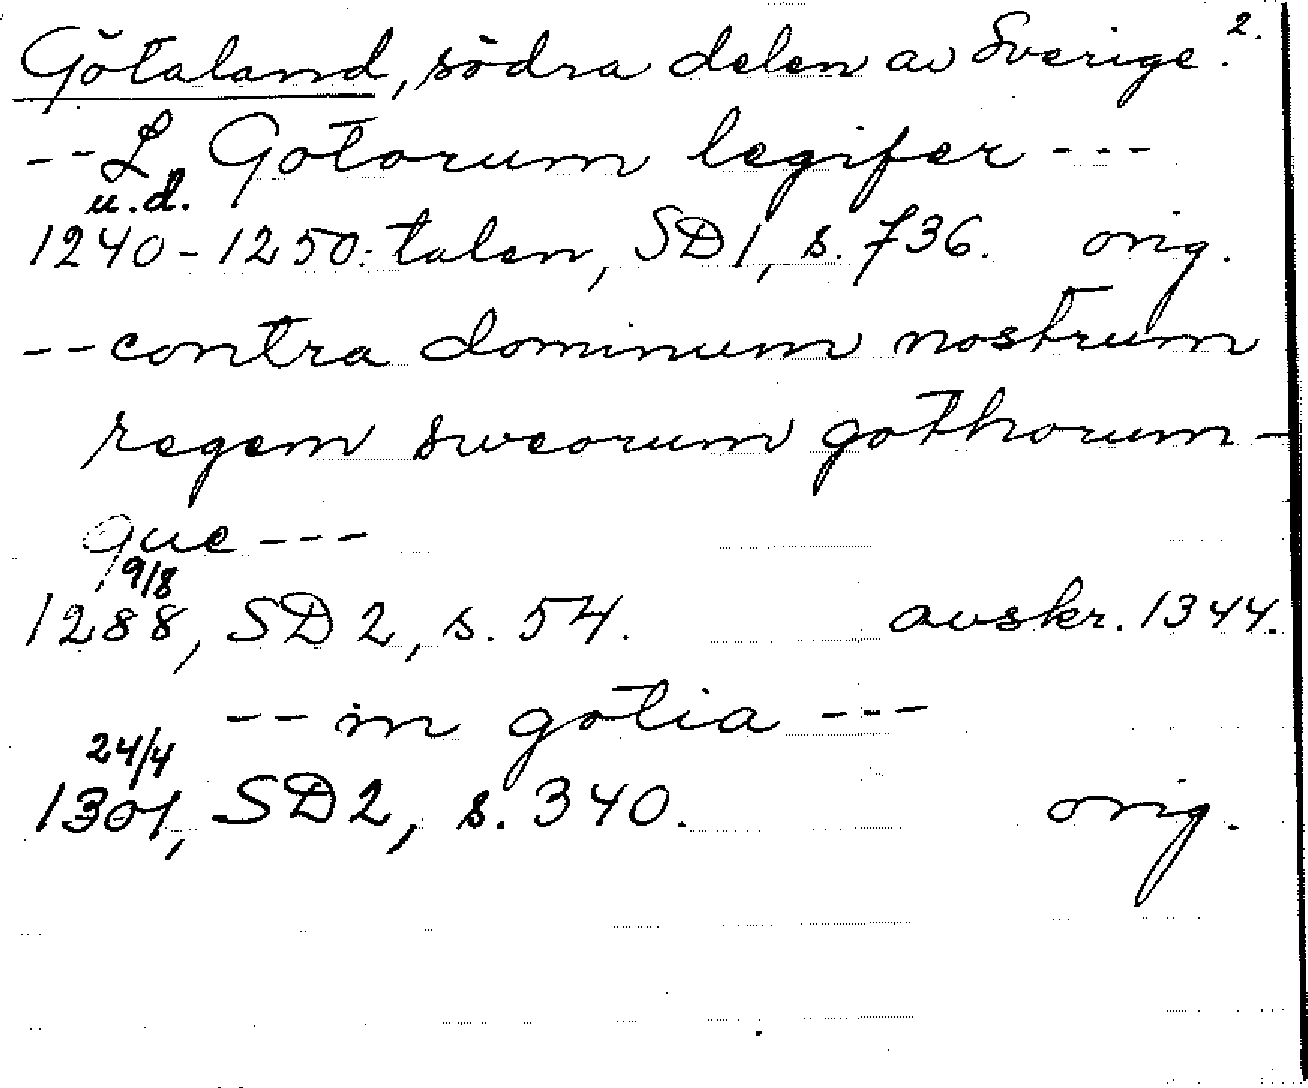 Götaland, södra delen av Sverige. 2.
--L Gotorum legifer---
u.d.
1240-1250-talen, SD1, s. 736. orig.
--contra dominum nostrum
regem sweorum gothorum-
que---
19/8
1288, SD2, s. 54. avskr. 1344.
--in gotia---
24/4
1301, SD2, s. 340. orig.